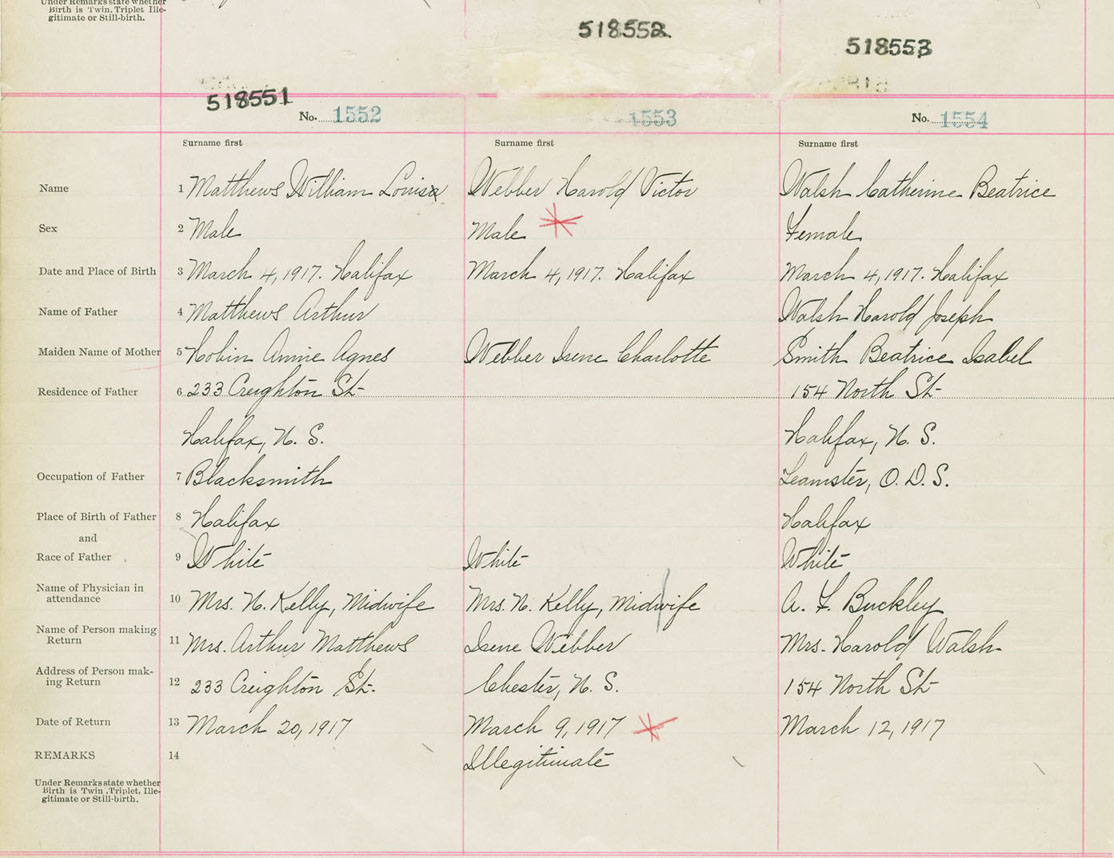 Under Remarks state whether
Birth is Twin, Triplet Ille-
gitimate or Still-birth.
518552
518553
518551
No. 1552
1553
No. 1554
Surname first
Surname first
Surname first
Name 1 Matthews William Louis Webber Harold Victor Walsh Catherine Beatrice
Sex 2 Male Male Female
Date and Place of Birth 3 March 4, 1917. Halifax March 4, 1917. Halifax March 4, 1917. Halifax
Name of Father 4 Matthews Arthur Walsh Harold Joseph
Maiden Name of Mother 5 Hobin Annie Agnes Webber Irene Charlotte Smith Beatrice Isabel
Residence of Father 6 233 Creighton St 154 North St
Halifax, N. S. Halifax, N. S.
Occupation of Father 7 Blacksmith Teamster, O. D. S.
Place of Birth of Father 8 Halifax Halifax
and
Race of Father 9 White White White
Name of Physician in
attendance 10 Mrs. N. Kelly, Midwife Mrs. N. Kelly, Midwife A. F. Buckley
Name of Person making
Return 11 Mrs. Arthur Matthews Irene Webber Mrs. Harold Walsh
Address of Person mak-
ing Return 12 233 Creighton St. Chester, N. S. 154 North St
Date of Return 13 March 20, 1917 March 9, 1917 March 12, 1917
REMARKS 14 Illegitimate
Under Remarks state whether
Birth is Twin, Triplet, Ille-
gitimate or Still-birth.